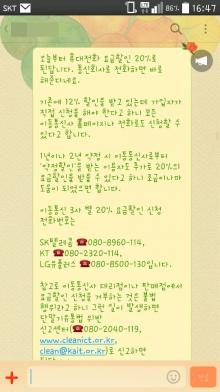 SKT
LTE
16:47
오늘부터 휴대전화 요금할인 20%로
된답니다. 통신회사로 전화하면 바로
해준다네요.
기존에 12% 할인을 받고 있는데 가입자가
직접 신청을 해야 한다고 하니 모든
이동통신사 홈페이지나 전화로도 신청할 수
있다고 합니다.
1년이나 2년 약정 시 이동통신사로부터
약정할인을 받는 이용자도 추가로 20%의
요금할인을 받을 수 있다고 하니 조금이나마
도움이 되었으면 합니다.
이동통신 3사 별 20% 요금할인 신청
전화번호는
SK텔레콤 ☎080-8960-114,
KT ☎080-2320-114,
LG유플러스 ☎080-8500-130입니다.
참고로 이동통신사 대리점이나 판매점에서
요금할인 신청을 거부하는 것은 불법
행위라고 하니 그런 일이 발생하면
단말기유통법 위반
신고센터(☎080-2040-119,
www.cleanict.or.kr,
clean@kait.or.kr)로 신고하면